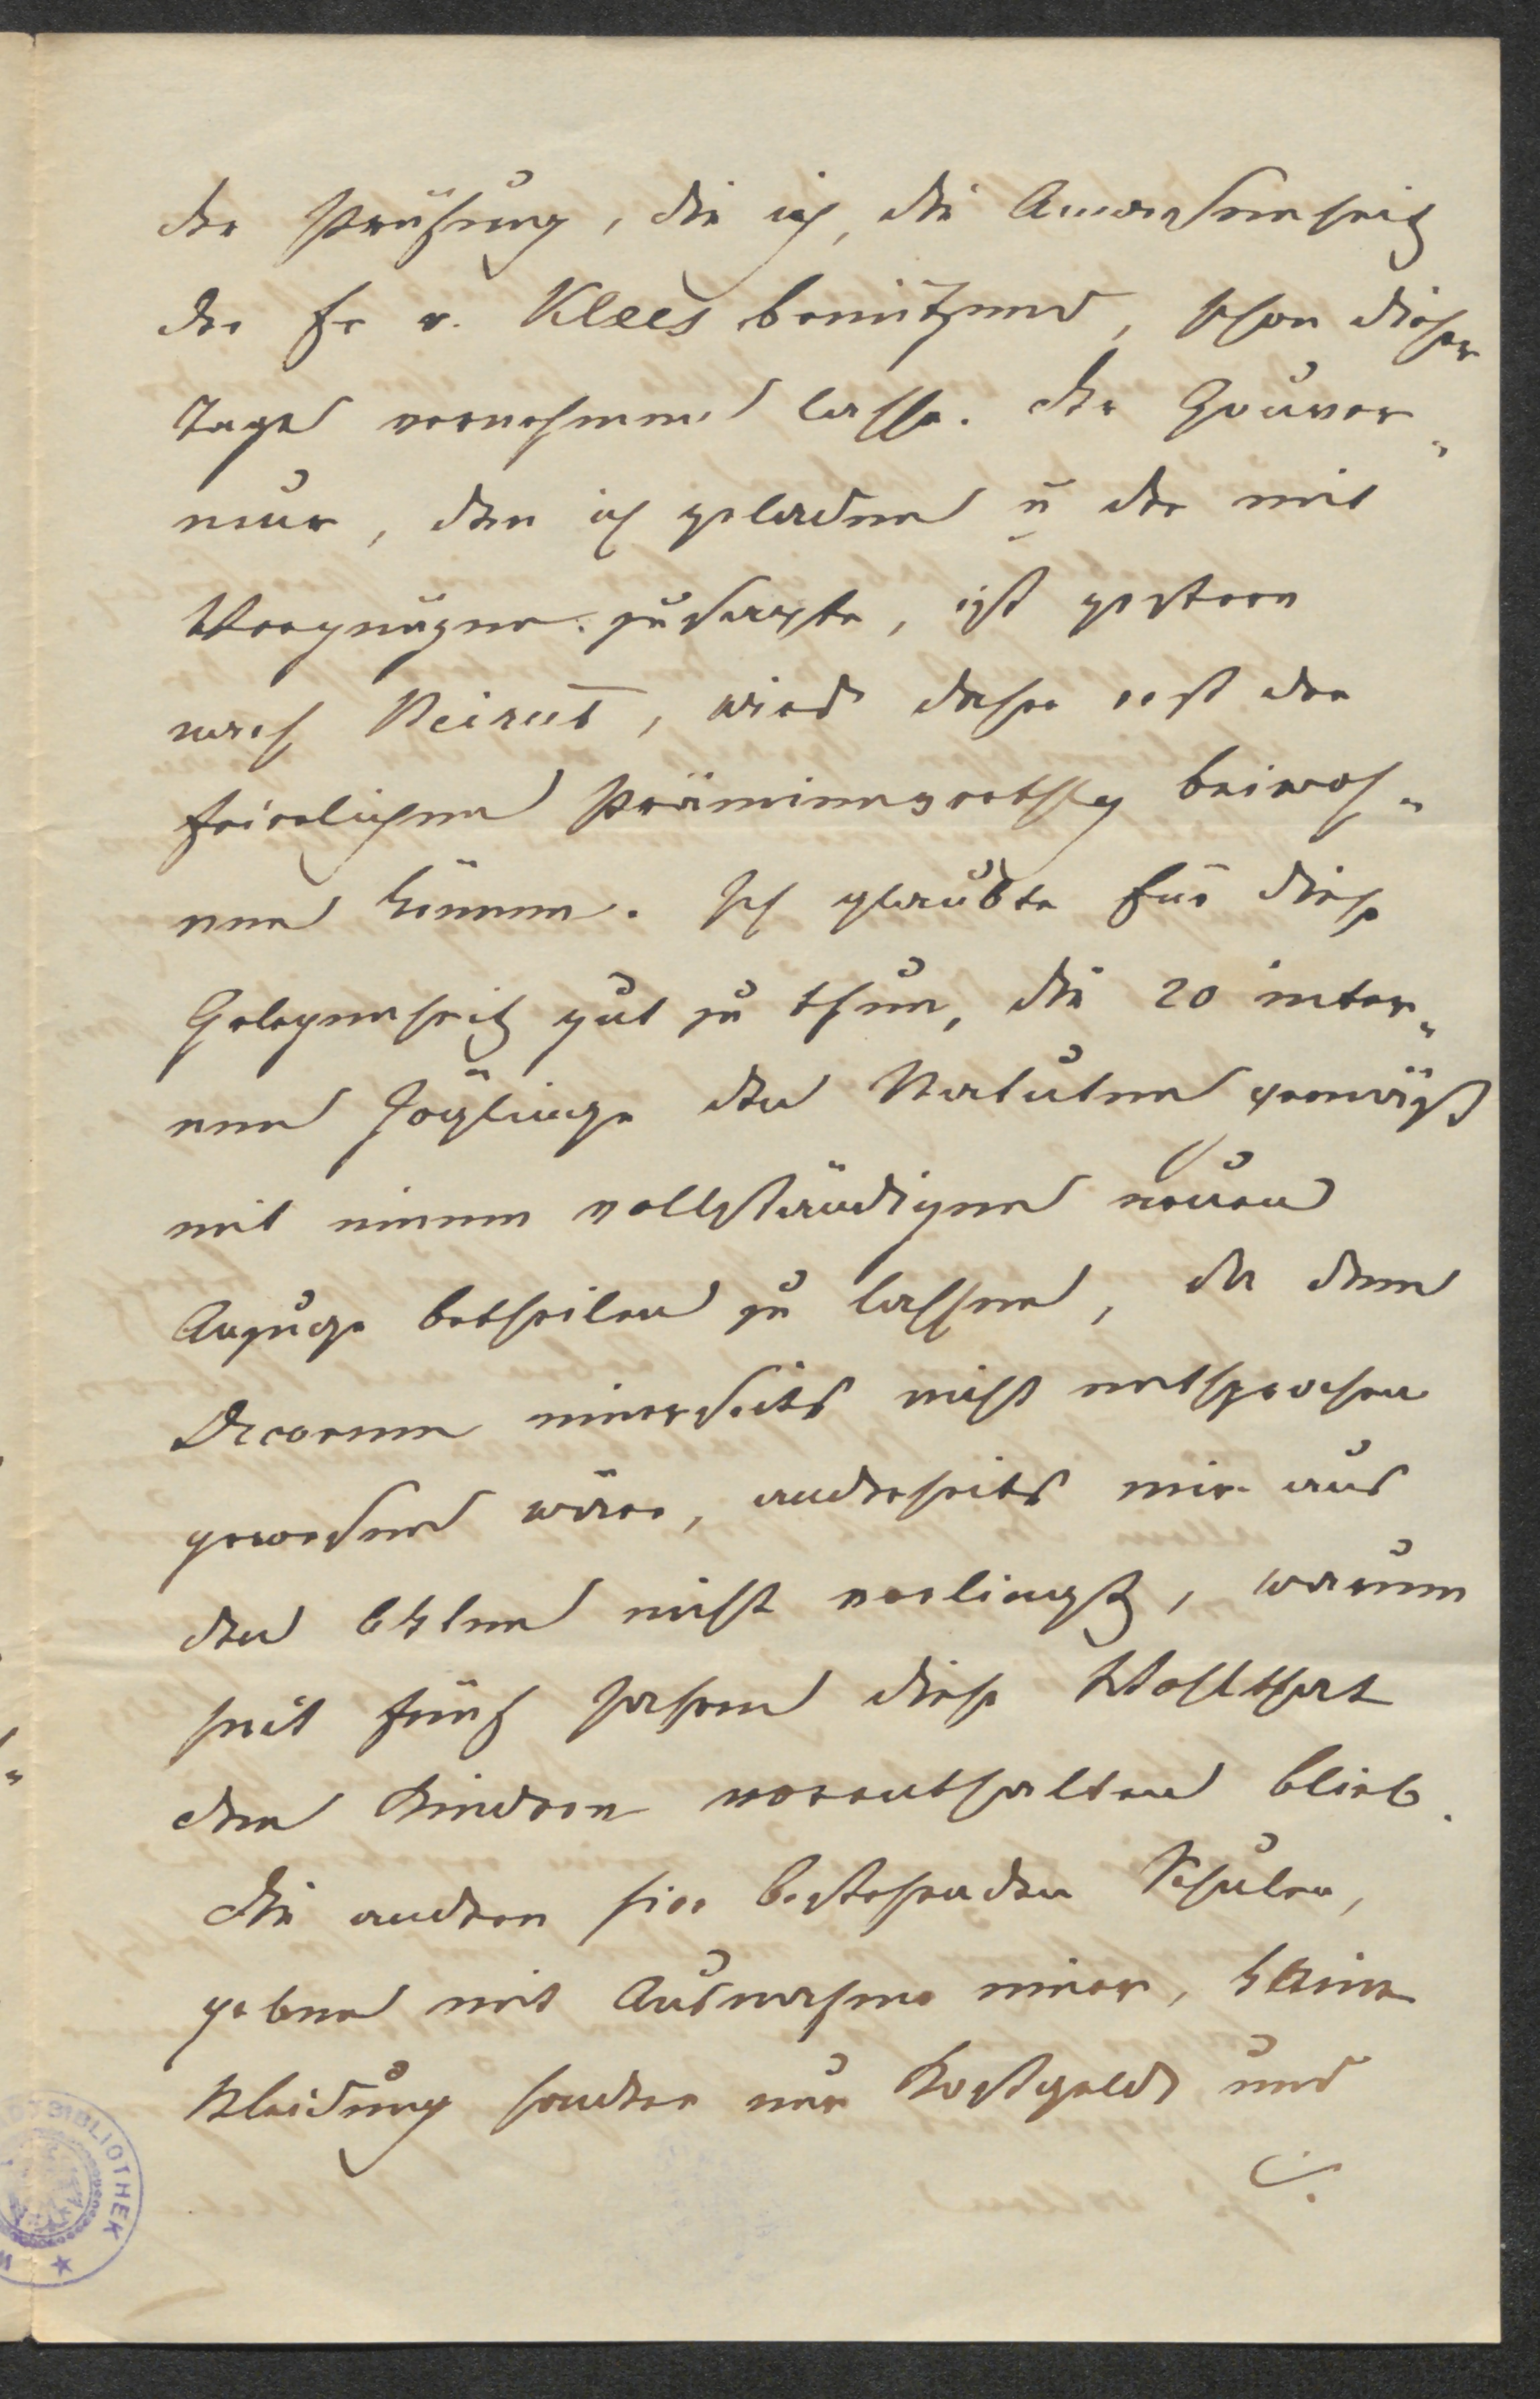 der Prüfung, die ich, die Anwesenheit
der Fr v. Klees benützend, schon dieser
Tage vornehmen lasse. Der Gouver„
neur, den ich geladen u der mit
Vergnügen zusagte, ist gestern
nach Beirut, wird daher erst der
feierlichen Prämienverthlg beiwoh„
nen können. Ich glaubte für diese
Gelegenheit gut zu thun, die 20 inter„
nen Zöglinge den Statuten gemäß
mit einem vollständigen neuen
Anzuge betheilen zu lassen, da dem
Decorum einerseits nicht entsprochen
gewesen wäre, anderseits mir aus
den Akten nicht vorliegt, warum
seit fünf Jahren diese Wohlthat
den Kindern vorenthalten blieb.
Die andern hier bestehenden Schulen,
geben mit Ausnahme einer, keine
Kleidung sonder nur Kostgeld und
./.
BIBLIOTHEK